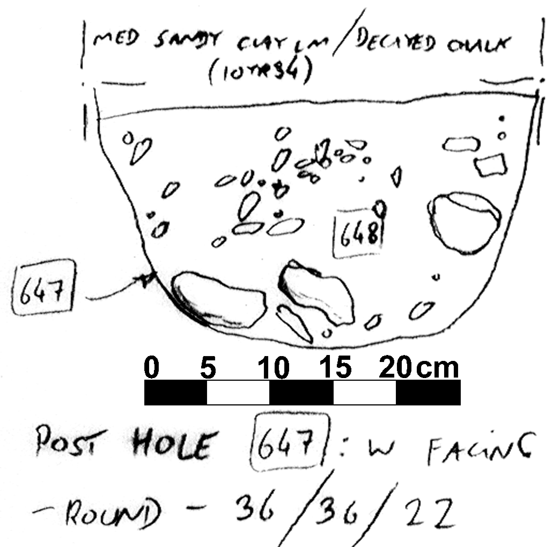 MED SANDY CLAY LM / DECAYED CHALK
(10YR34)
648
647
0 5 10 15 20 cm
POST HOLE 647: W FACING
- ROUND - 36/36/22